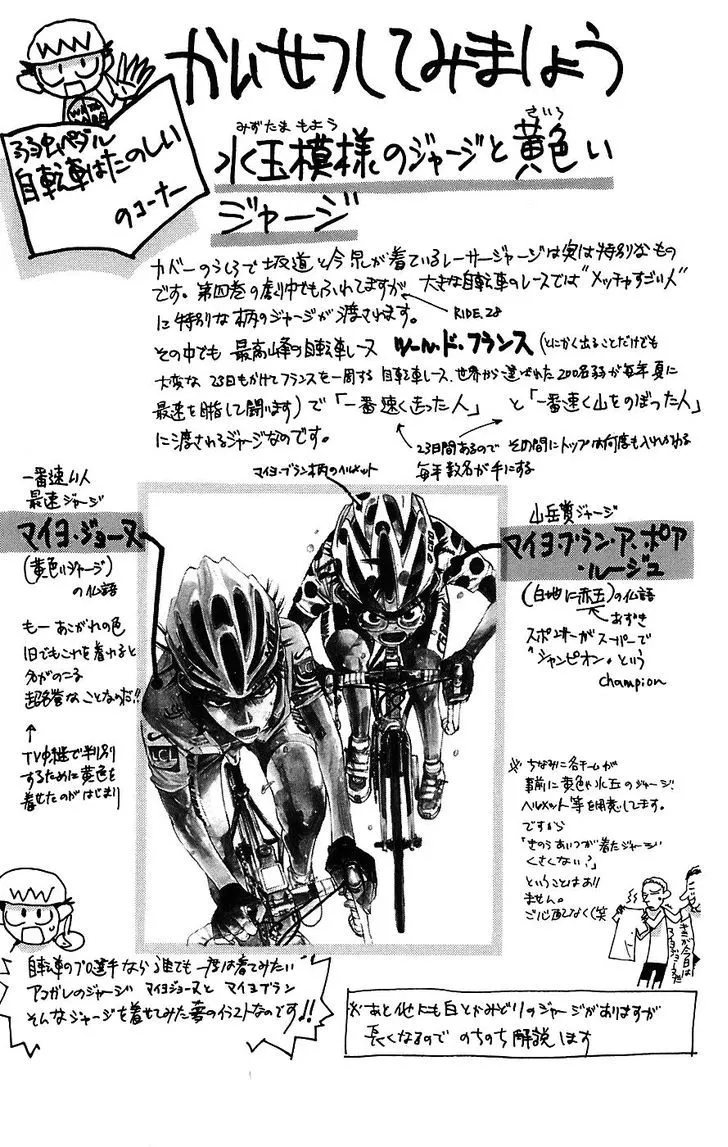 かいせつしてみましょう
弱虫ペダル
自転車はたのしい
のコーナー
みずたま もよう
きいろ
水玉模様のジャージと黄色い
ジャージ
カバーのうしろで坂道と今泉が着ているレーサージャージは実は特別なもの
です。第四巻の劇中でもふれてますが 大きな自転車のレースでは"メッチャすごい人"
に特別な柄のジャージが渡されます。
RIDE.28
その中でも 最高峰の自転車レース ツール・ド・フランス (とにかく出ることだけでも
大変な 23日もかけてフランスを一周する 自転車レース、世界から選ばれた200名弱が毎年夏に
最速を目指して闘います)で「一番速く走った人」 と「一番速く山をのぼった人」
に渡されるジャージなのです。
23日間あるので その間にトップは何度も入れかわる
毎年数名が手にする
マイヨ・ブラン柄のヘルメット
一番速い人
最速ジャージ
マイヨ・ジョーヌ
(黄色いジャージ)
の仏語
もー あこがれの色
1日でもこれを着れると
名がのこる
超名誉なことなのだ!!
TV中継で判別
するために黄色を
着せたのがはじまり
山岳賞ジャージ
マイヨ・ブラン・ア・ポア
・ルージュ
(白地に赤玉)の仏語
あずき
スポンサーがスーパーで
"シャンピオン"という
champion
LCL
※ちなみに各チームが
事前に黄色や水玉のジャージ、
ヘルメット等を用意してます。
ですから
「きのうあいつが着たジャージ
くさくない?」
ということはあり
ません。
ご心配なく(笑
自転車のプロ選手なら誰でも一度は着てみたい
アコガレのジャージ マイヨジョーヌと マイヨブラン
そんなジャージを着せてみた夢のイラストなのです!!
※あと他にも白とかみどりのジャージがありますが
長くなるので のちのち解説します